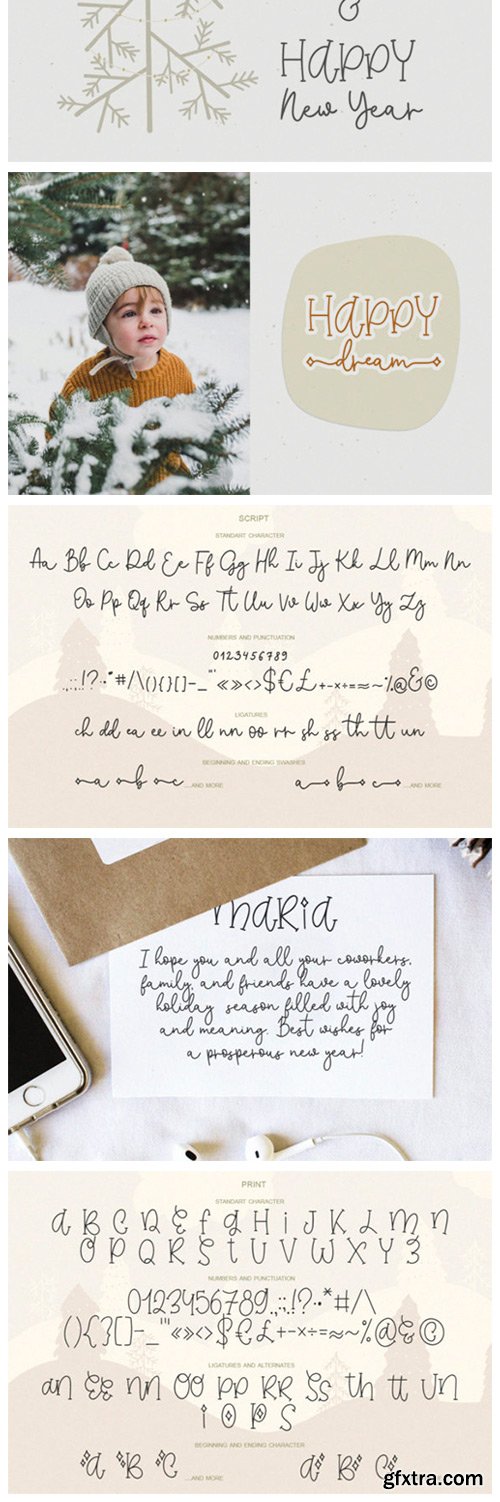 &
HAPPY
New Year
HAPPY
dream
SCRIPT
STANDART CHARACTER
Aa Bb Cc Dd Ee Ff Gg Hh Ii Jj Kk Ll Mm Nn
Oo Pp Qq Rr Ss Tt Uu Vv Ww Xx Yy Zz
NUMBERS AND PUNCTUATION
0123456789
.,:;!?·•*#/\(){}[]-_"'«»<>$€£+-×÷=≈~%@&©
LIGATURES
ch dd ea ee in ll nn oo rr sh ss th tt un
BEGINNING AND ENDING SWASHES
a b c ...AND MORE
a b c ...AND MORE
MARIA
I hope you and all your coworkers,
family, and friends have a lovely
holiday season filled with joy
and meaning. Best wishes for
a prosperous new year!
PRINT
STANDART CHARACTER
a B C D E f G H i J K L M N
O P Q R S t U V W X Y Z
NUMBERS AND PUNCTUATION
0123456789.,:;!?·•*#/\
(){}[]-_'"«»<>$€£+-×÷=≈~%@&©
LIGATURES AND ALTERNATES
an EE nn OO pp RR SS th tt UN
i O P S
BEGINNING AND ENDING CHARACTER
a B C ...AND MORE
a B C
gfxtra.com